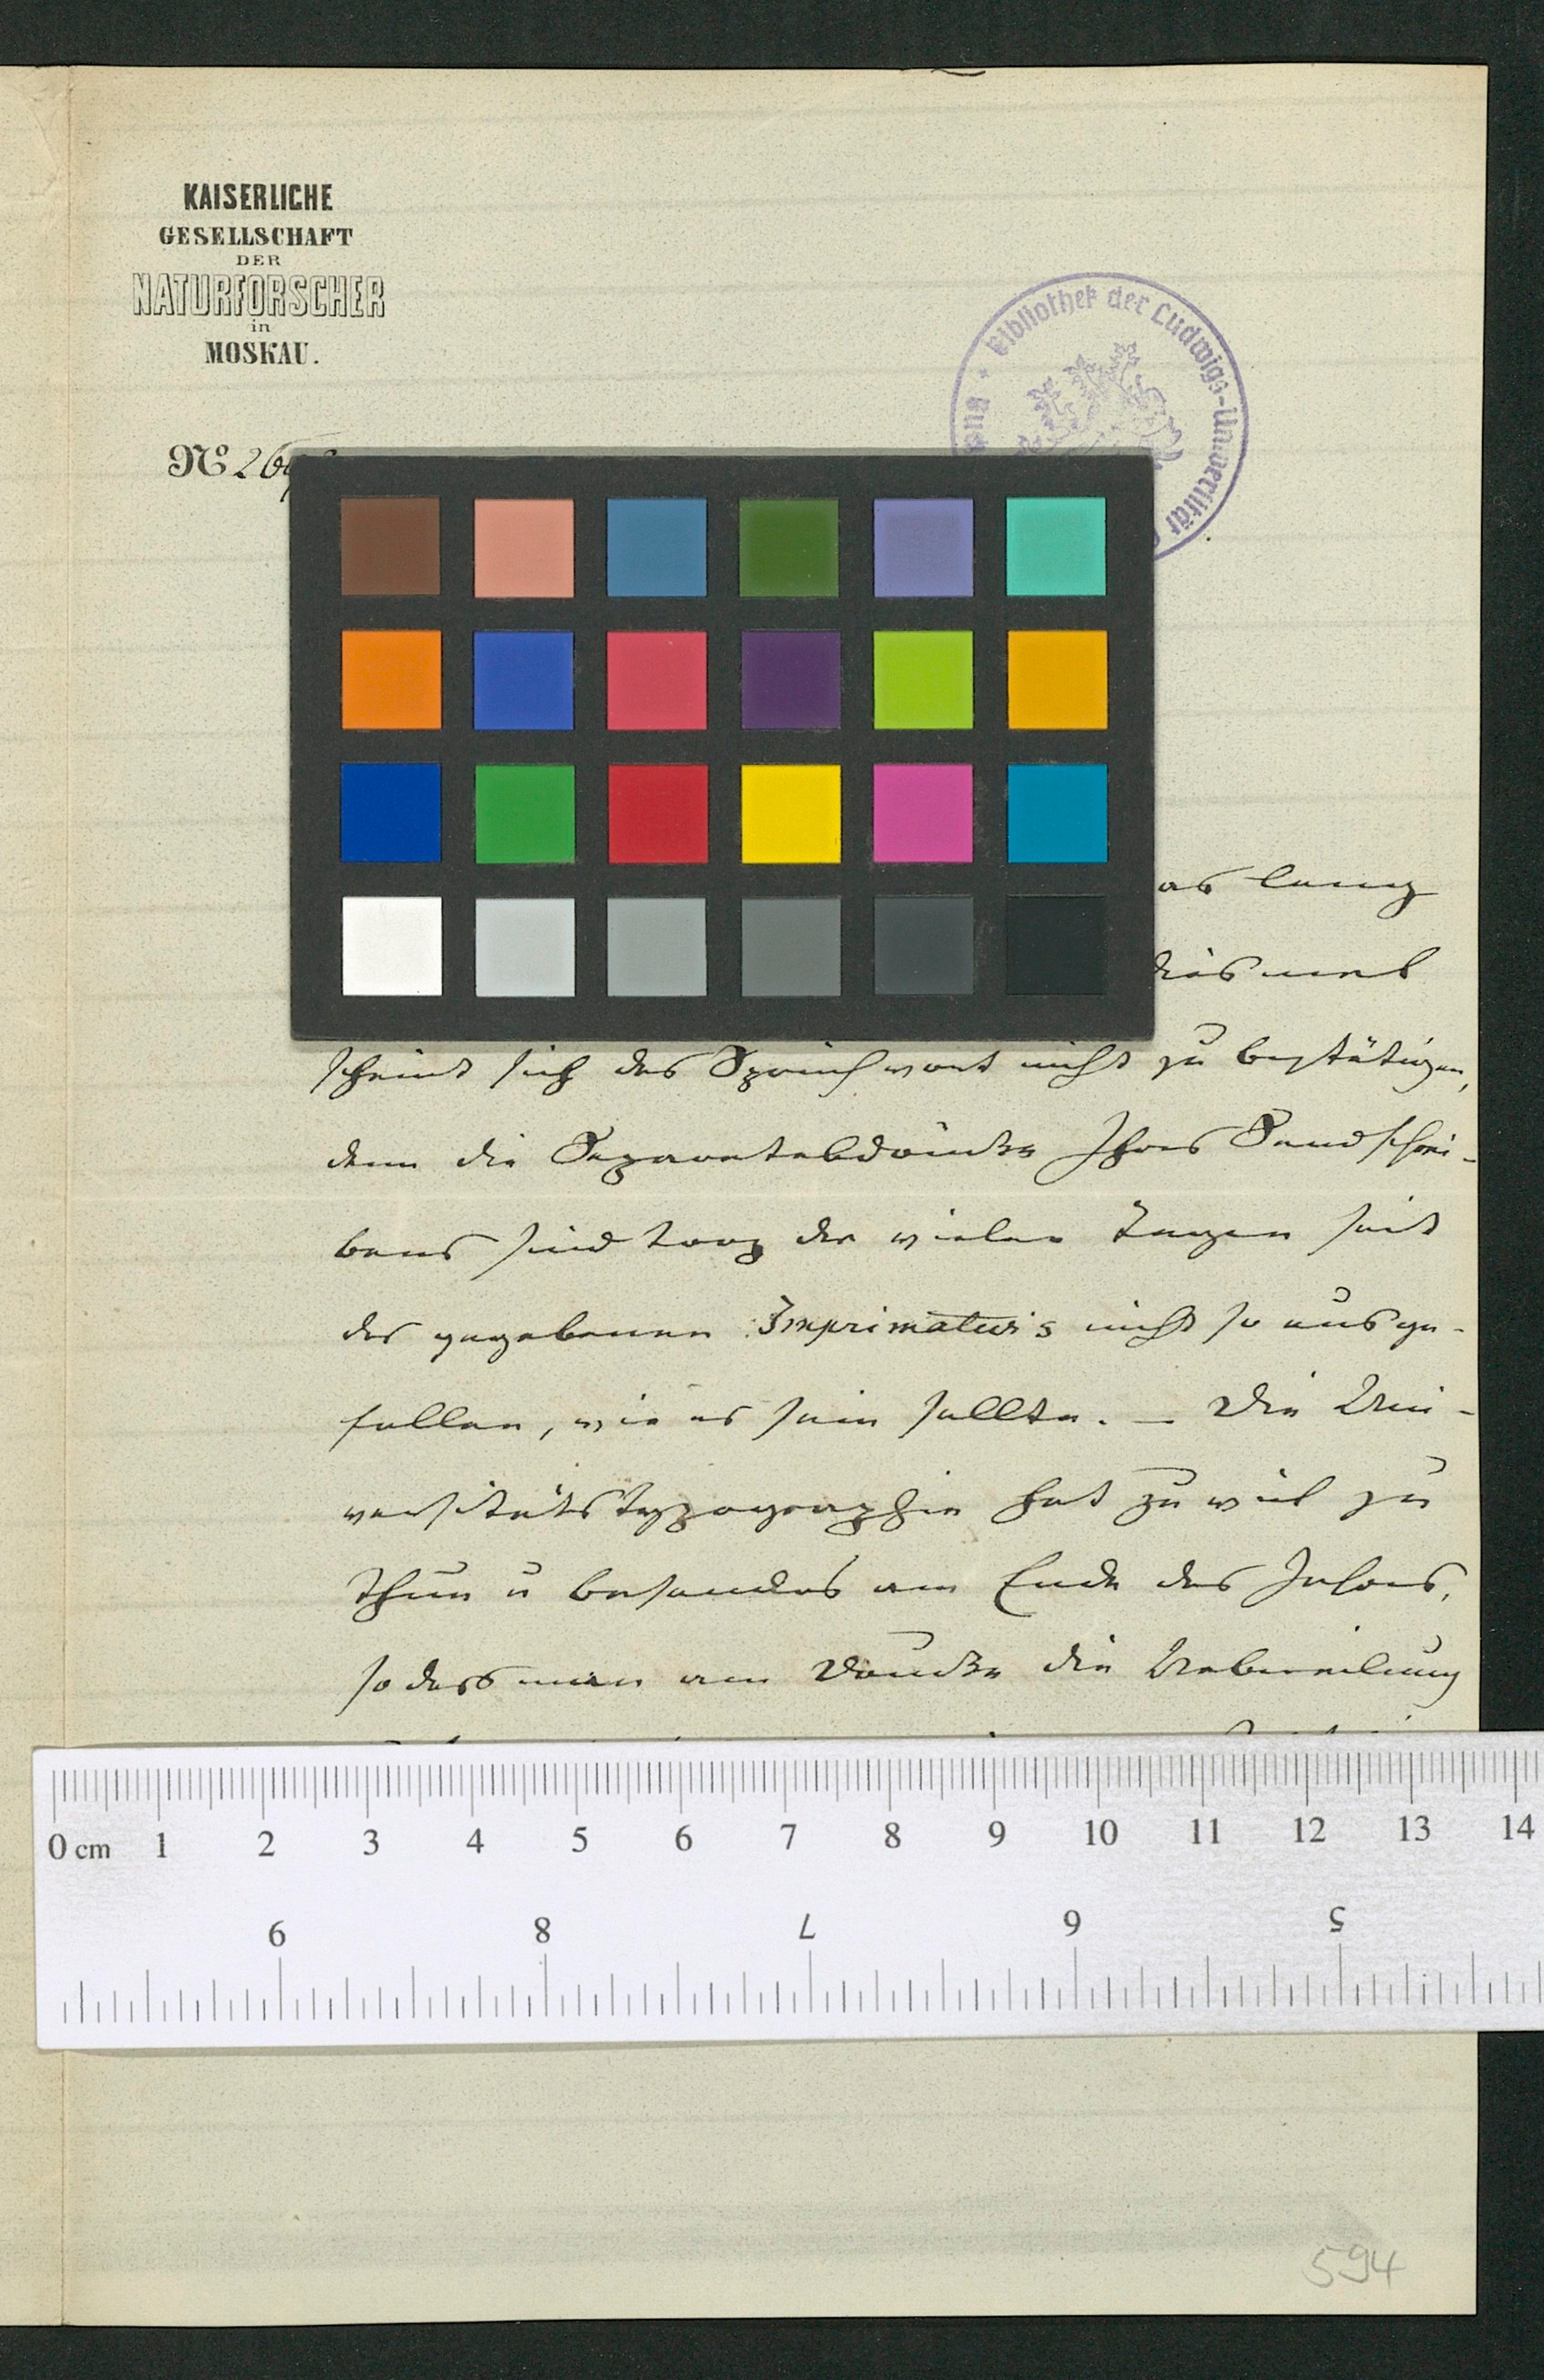 KAISERLICHE
GESELLSCHAFT
DER
NATURFORSCHER
in
MOSKAU.
Bibliothek der Ludwigs-Universität
№ 26
as lang
dies mal
scheint sich das Sprichwort nicht zu bestätigen,
denn die Separatabdrücke Ihres Sendschrei-
bens sind trotz der vielen Tagen seit
des gegebenen Imprimaturs nicht so ausge-
fallen, wie es sein sollte. — Die Uni-
versitätstypographie hat zu viel zu
thun u besonders am Ende des Jahres,
so dass man am Drucke die Uebereilung
0 cm 1 2 3 4 5 6 7 8 9 10 11 12 13 14
9 8 7 6 5
594